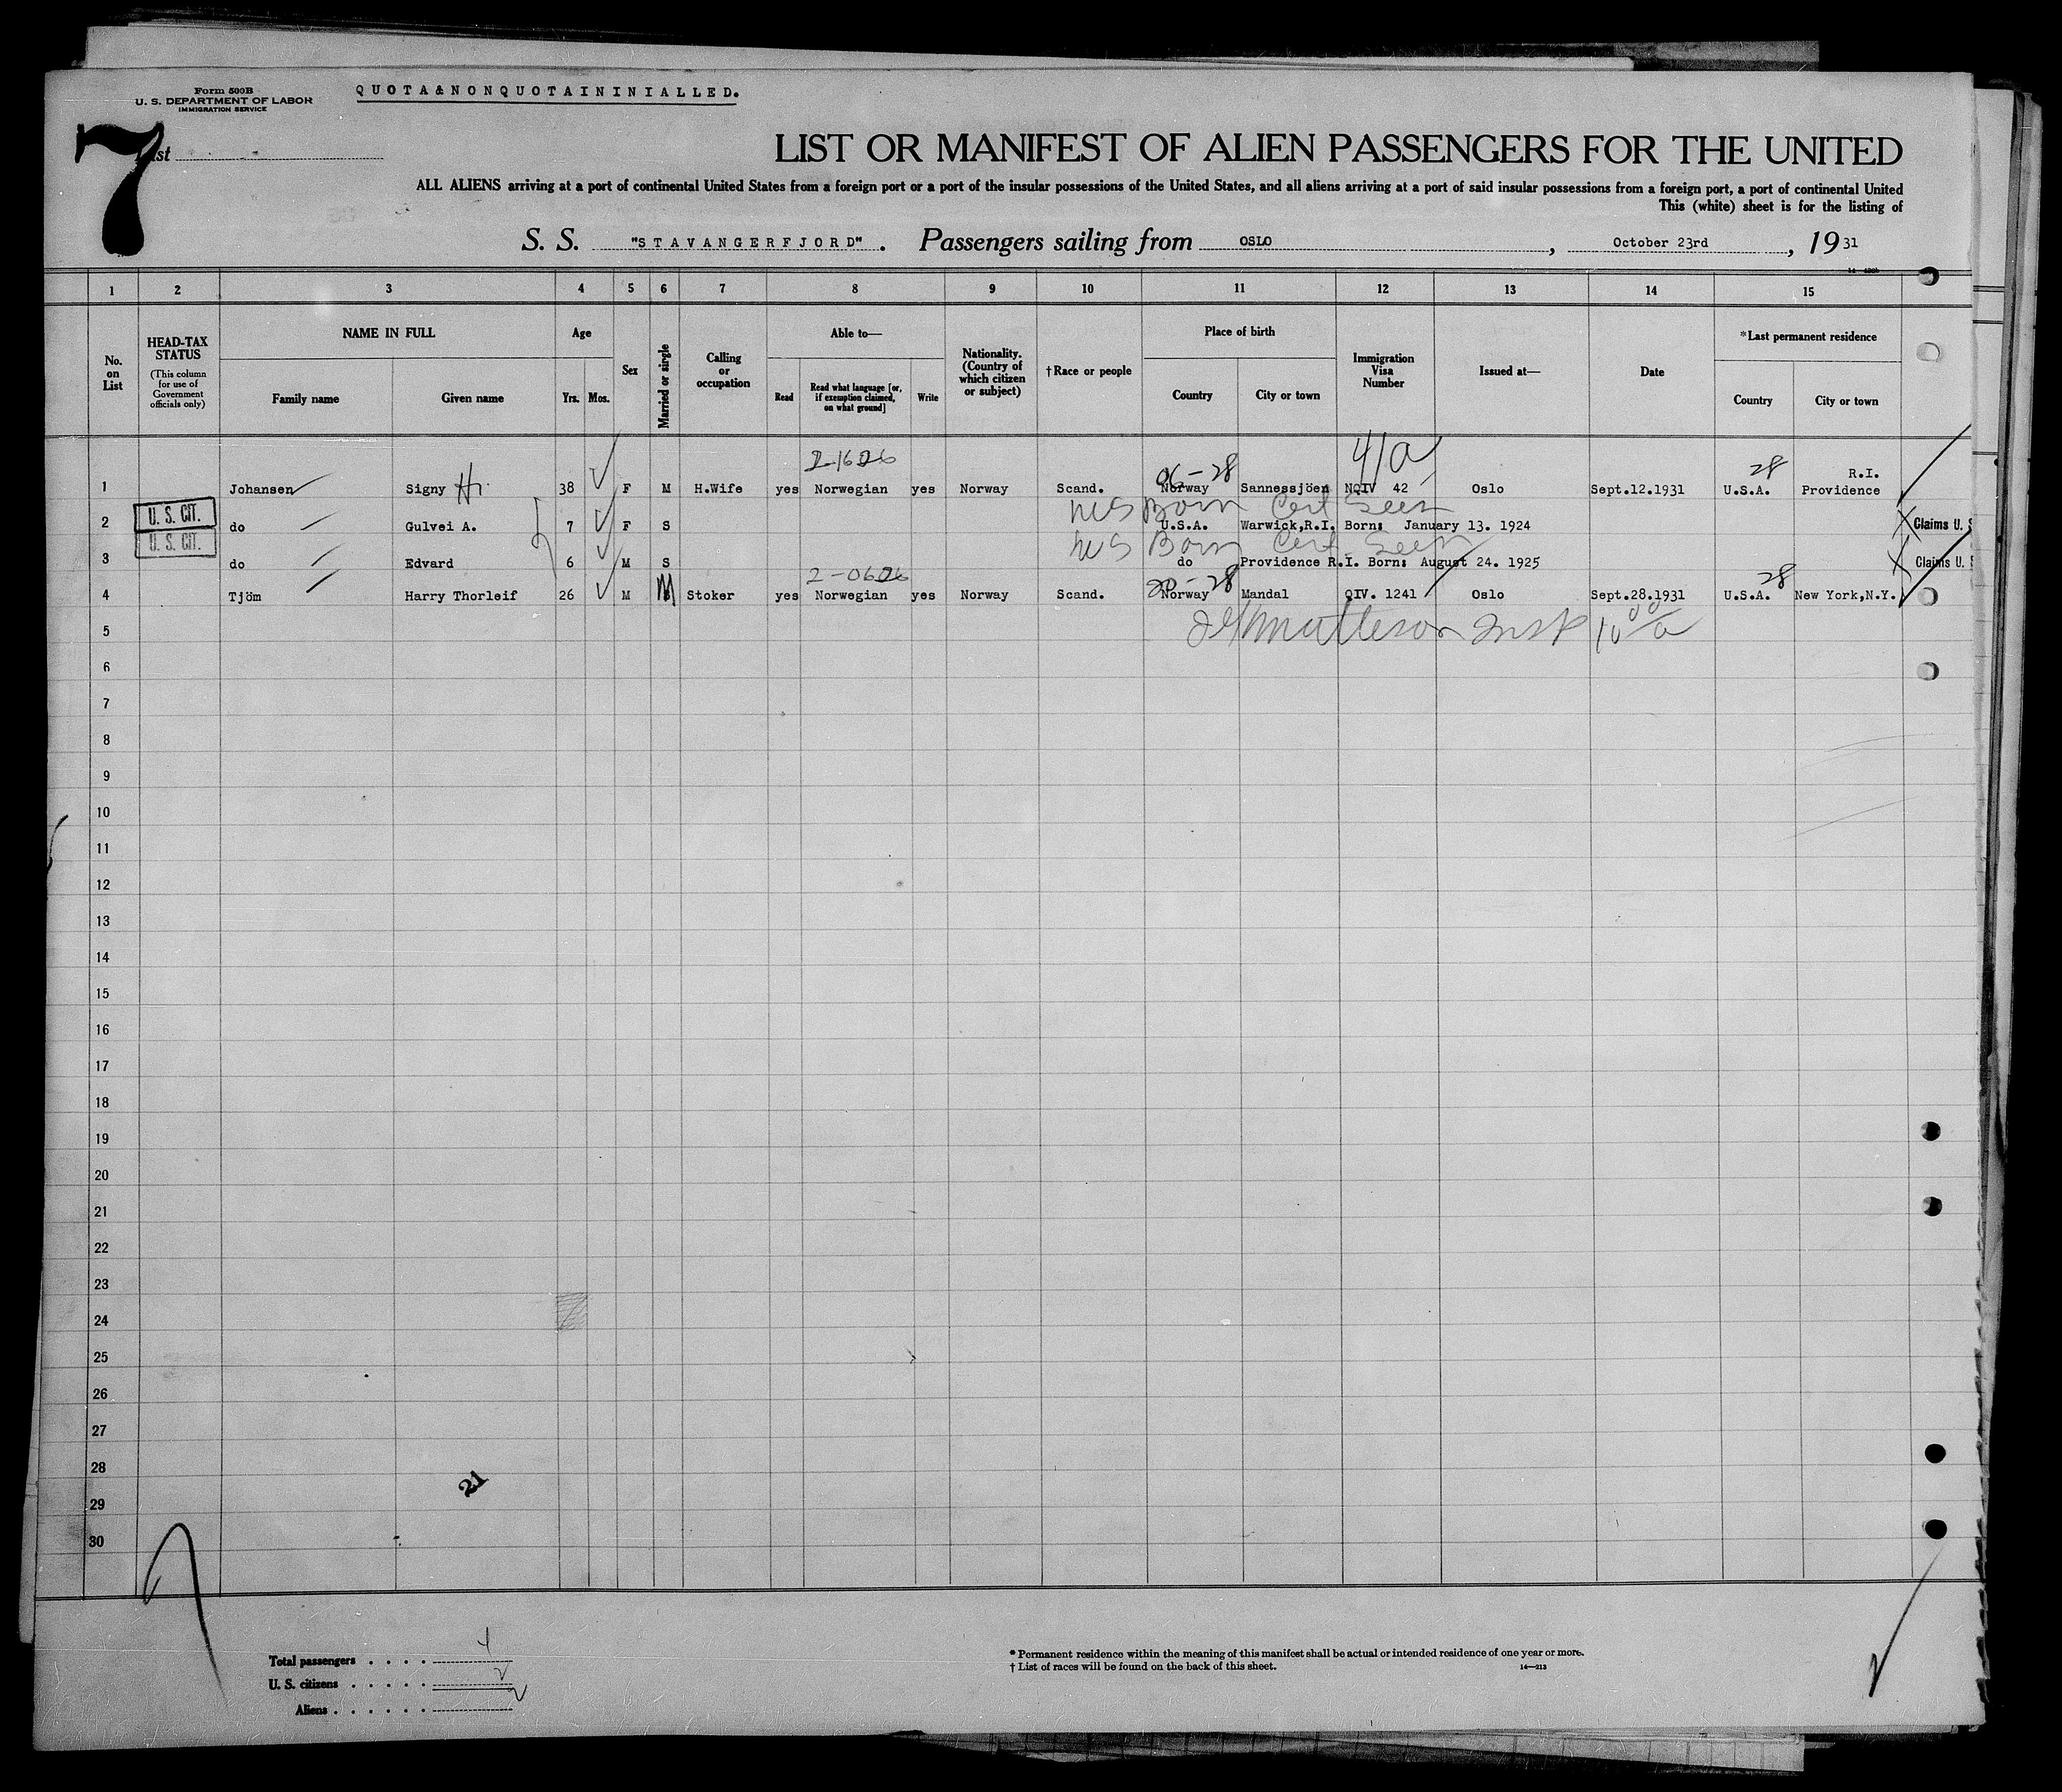 Form 500B
U. S. DEPARTMENT OF LABOR
IMMIGRATION SERVICE
QUOTA&NONQUOTAININIALLED.
7
LIST OR MANIFEST OF ALIEN PASSENGERS FOR THE UNITED
ALL ALIENS arriving at a port of continental United States from a foreign port or a port of the insular possessions of the United States, and all aliens arriving at a port of said insular possessions from a foreign port, a port of continental United
This (white) sheet is for the listing of
S. S. "STAVANGERFJORD". Passengers sailing from OSLO, October 23rd, 1931
1 2 3 4 5 6 7 8 9 10 11 12 13 14 15
No. on List
HEAD-TAX STATUS
(This column for use of Government officials only)
NAME IN FULL
Family name Given name
Age
Yrs. Mos.
Sex
Married or single
Calling or occupation
Able to—
Read Read what language [or, if exemption claimed, on what ground] Write
Nationality. (Country of which citizen or subject)
†Race or people
Place of birth
Country City or town
Immigration Visa Number
Issued at—
Date
*Last permanent residence
Country City or town
2-1626 06-28 41a 28 R.I.
1 Johansen Signy H. 38 F M H.Wife yes Norwegian yes Norway Scand. Norway Sannessjöen NQIV 42 Oslo Sept.12.1931 U.S.A. Providence
U. S. CIT. Born Cert Seen
2 do Gulvei A. 7 F S U.S.A. Warwick,R.I. Born: January 13. 1924 Claims U. S
U. S. CIT. Born Cert. Seen
3 do Edvard 6 M S do Providence R.I. Born: August 24. 1925 Claims U. S
2-0626 20-28 28
4 Tjöm Harry Thorleif 26 M M Stoker yes Norwegian yes Norway Scand. Norway Mandal QIV. 1241 Oslo Sept.28.1931 U.S.A. New York,N.Y.
5
6
7
8
9
10
11
12
13
14
15
16
17
18
19
20
21
22
23
24
25
26
27
28
21
29
30
Total passengers 4
U. S. citizens 2
Aliens 2
* Permanent residence within the meaning of this manifest shall be actual or intended residence of one year or more.
† List of races will be found on the back of this sheet. 14—213